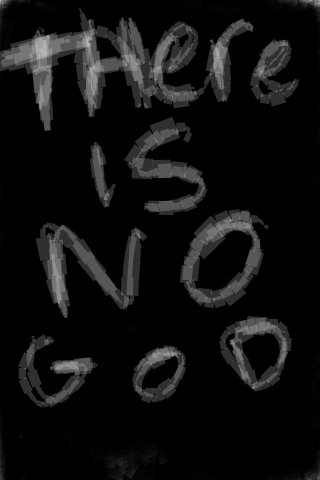 THere
IS
NO
GOD